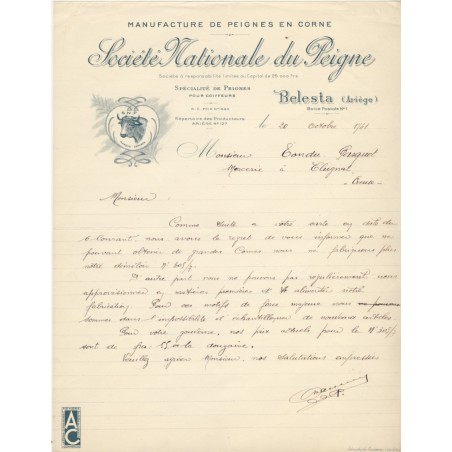 MANUFACTURE DE PEIGNES EN CORNE
Société Nationale du Peigne
Société à responsabilité limitée au Capital de
SPÉCIALITÉ DE PEIGNES
POUR COIFFEURS
Répertoire des Producteurs
Belesta (Ariège)
Boîte Postale N° 1
le 20 octobre 1941
Monsieur Tondu
Mercerie à Clugnat
Creuse
Monsieur
Comme suite à votre carte en date du
6 courant, nous avons le regret de vous informer que ne
pouvant obtenir de grandes Cornes nous ne fabriquons plus
votre démêloir N° 605/7.
D'autre part nous ne pouvons pas régulièrement nous
approvisionner en matières premières et alimenter notre
fabrication. Pour ces motifs de force majeure nous
sommes dans l'impossibilité d'échantillonner de nombreux articles
Pour votre gouverne, nos prix actuels pour le N° 605/7
sont de frs: la douzaine.
Veuillez agréer Monsieur, nos salutations empressées
AC